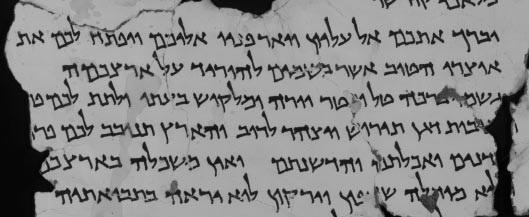 וברך אתכם אל עליון ויאר פניו אליכם ויפתח לכם את
אוצרו הטוב אשר בשמים להוריד על ארצכמה
גשמי ברכה טל ומטר יורה ומלקוש בעתו ולתת לכם
דגן תירוש ויצהר לרוב והארץ תנובב לכם
ואכלתם והדשנתם ואין משכלה
מוחלה וירקון לוא יראה בתבואתיה